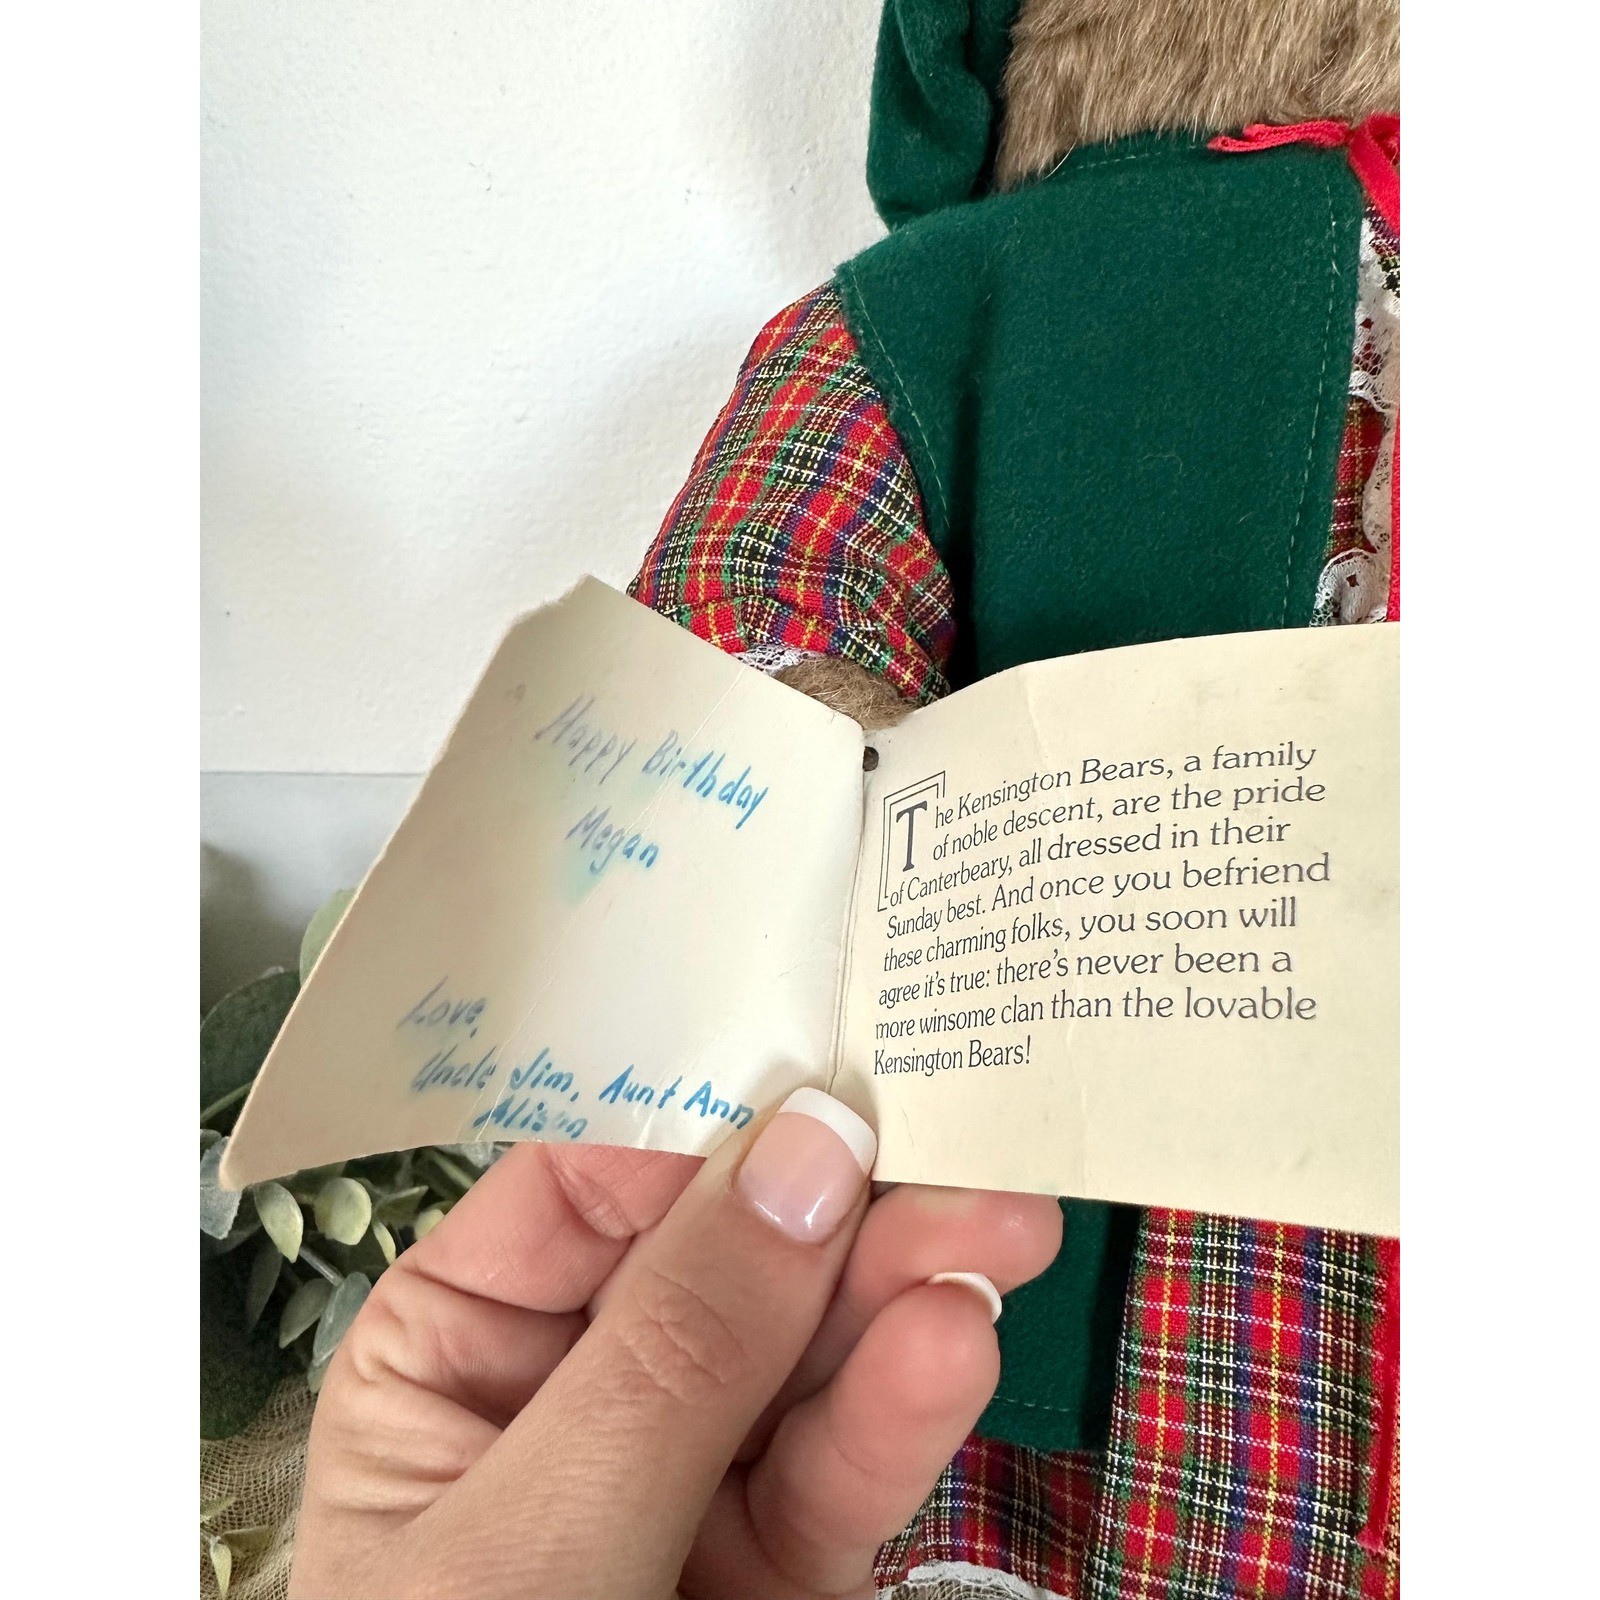 Happy Birthday
Megan
Love,
Uncle Jim, Aunt Ann
Alison
The Kensington Bears, a family
of noble descent, are the pride
of Canterbeary, all dressed in their
Sunday best. And once you befriend
these charming folks, you soon will
agree it's true: there's never been a
more winsome clan than the lovable
Kensington Bears!